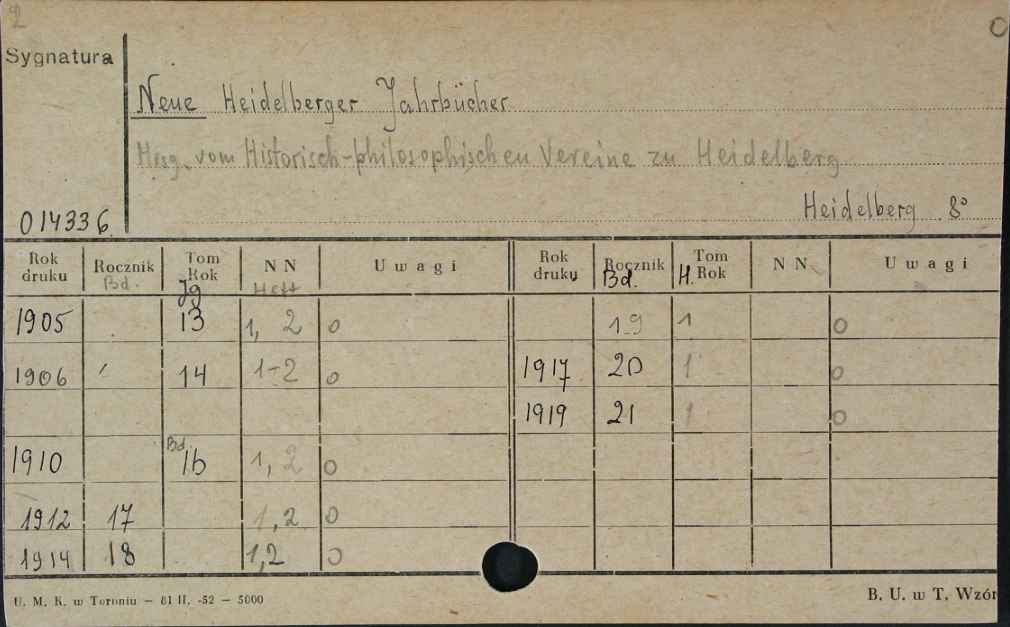 2
Sygnatura
Neue Heidelberger Jahrbücher
Hrsg. vom Historisch-philosophischen Vereine zu Heidelberg
Heidelberg 8°
014336
Rok druku Rocznik Bd. Tom Rok Jg NN Heft Uwagi Rok druku Rocznik Bd. Tom H. Rok NN Uwagi
1905 13 1, 2 o 19 1 o
1906 14 1-2 o 1917 20 1 o
1919 21 1 o
1910 Bd. 16 1, 2 o
1912 17 1, 2 o
1914 18 1,2 o
U. M. K. w Toruniu — 61 II. -52 — 5000
B. U. w T. Wzór